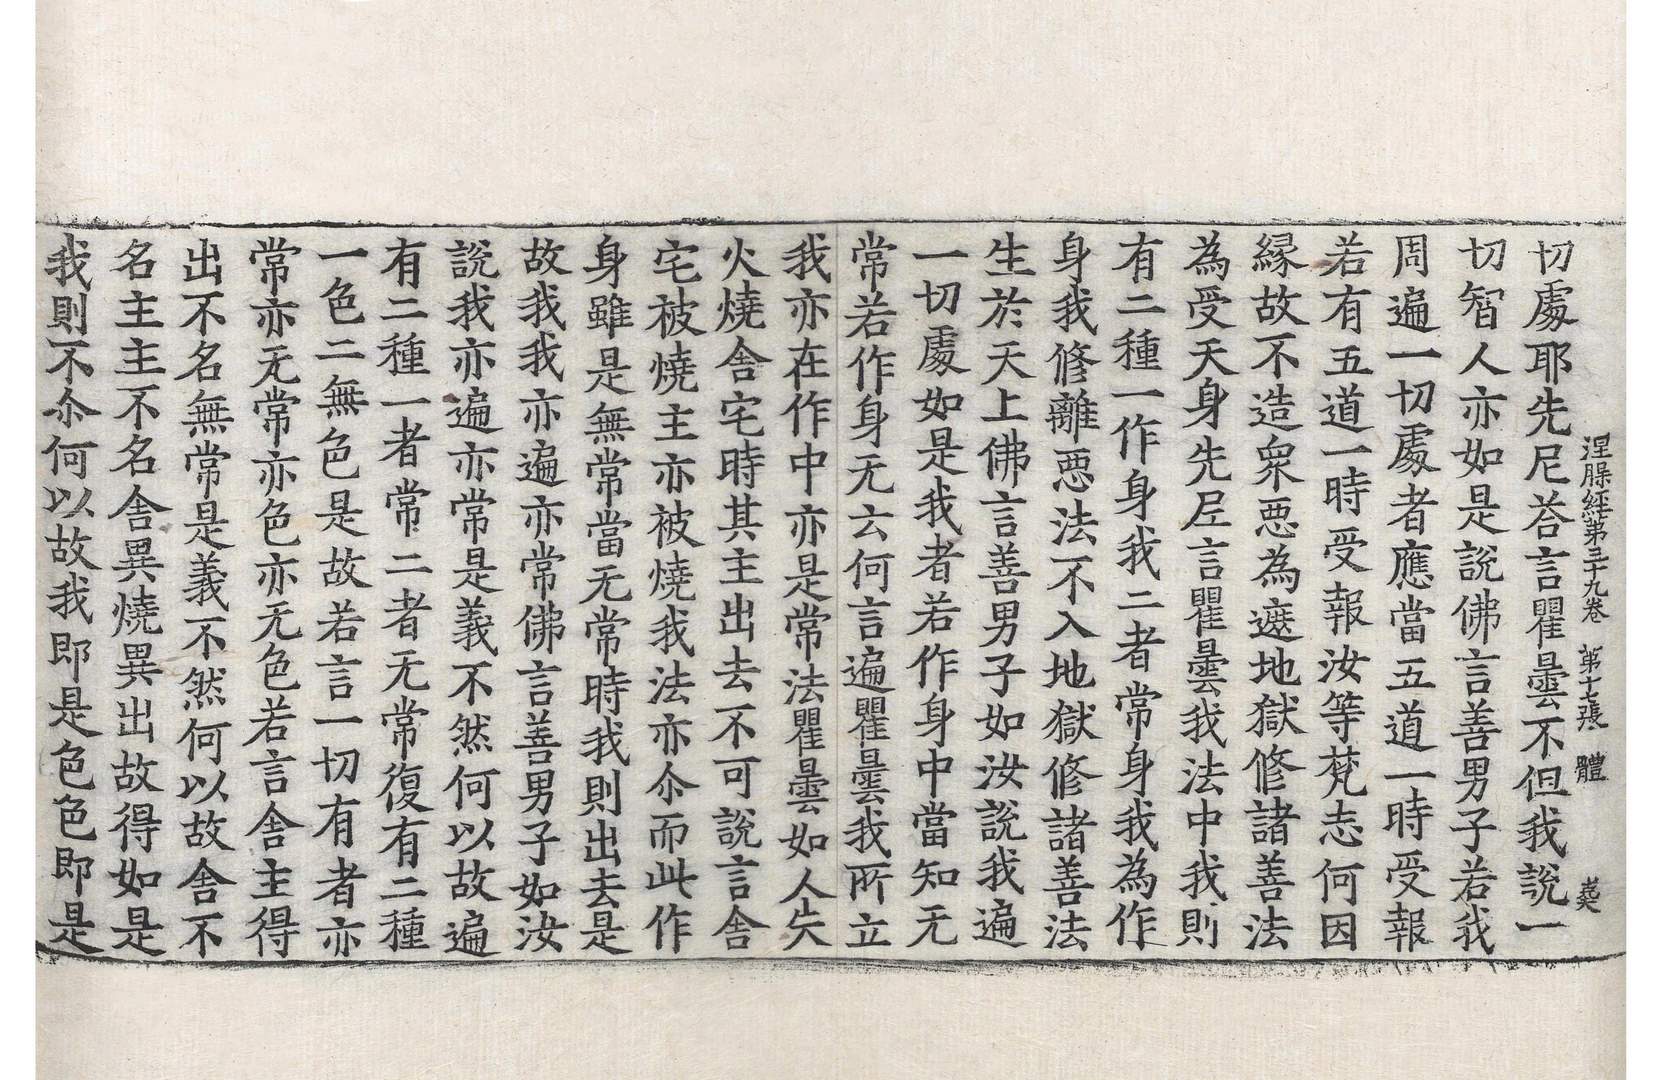 涅槃經第三十九卷 第十七張 體
切處耶先尼荅言瞿曇不但我說一
切智人亦如是說佛言善男子若我
周遍一切處者應當五道一時受報
若有五道一時受報汝等梵志何因
縁故不造衆惡為遮地獄修諸善法
為受天身先尼言瞿曇我法中我則
有二種一作身我二者常身我為作
身我修離惡法不入地獄修諸善法
生於天上佛言善男子如汝說我遍
一切處如是我者若作身中當知无
常若作身无云何言遍瞿曇我所立
我亦在作中亦是常法瞿曇如人失
火燒舍宅時其主出去不可說言舍
宅被燒主亦被燒我法亦尒而此作
身雖是無常當无常時我則出去是
故我我亦遍亦常佛言善男子如汝
說我亦遍亦常是義不然何以故遍
有二種一者常二者无常復有二種
一色二無色是故若言一切有者亦
常亦无常亦色亦无色若言舍主得
出不名無常是義不然何以故舍不
名主主不名舍異燒異出故得如是
我則不尒何以故我即是色色即是